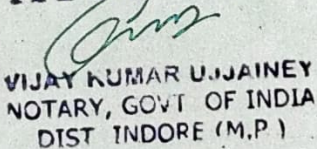 VIJAY KUMAR UJJAINEY
NOTARY, GOVT OF INDIA
DIST INDORE (M.P.)